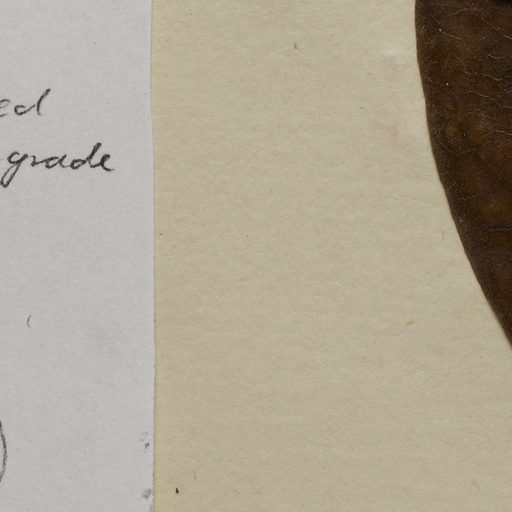 ed
grade
)